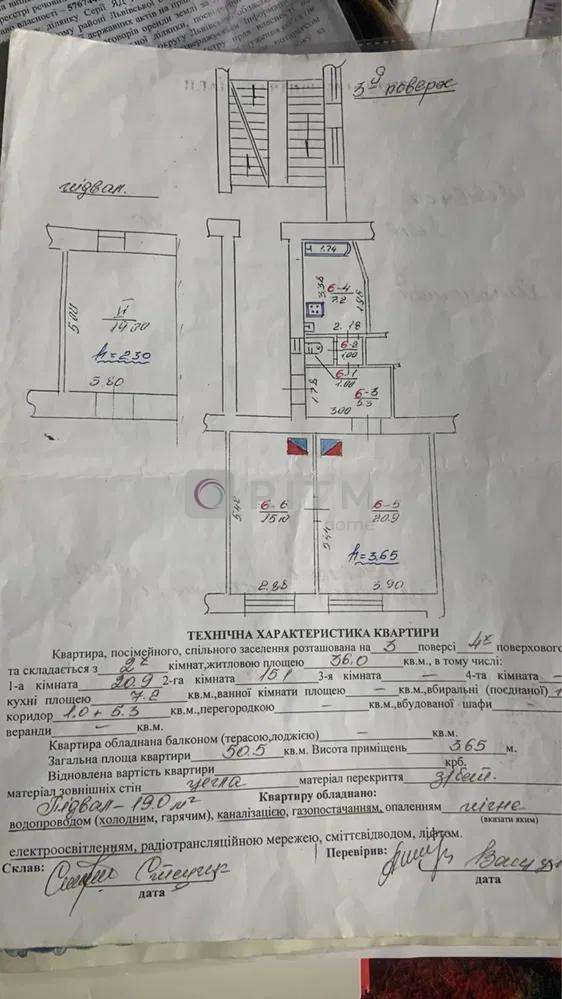 3й поверх
підвал.
1.74
6-4
7.2
3.38
1.95
2.18
6-2
1.00
6-1
1.00
6-3
5.3
1.78
3.00
5.00
II
19.00
h=2.30
3.80
6-6
15.10
5.42
2.88
6-5
20.9
5.44
h=3.65
3.90
RITM
home
ТЕХНІЧНА ХАРАКТЕРИСТИКА КВАРТИРИ
Квартира, посімейного, спільного заселення розташована на 3 поверсі 4х поверхового
та складається з 2х кімнат,житловою площею 36.0 кв.м., в тому числі:
1-а кімната 20.9 2-га кімната 15.1 3-я кімната — 4-та кімната —
кухні площею 7.2 кв.м.,ванної кімнати площею — кв.м.,вбиральні (поєднаної) 1
коридор 1.0 + 5.3 кв.м.,перегородкою — кв.м.,вбудованої шафи —
веранди — кв.м.
Квартира обладнана балконом (терасою,лоджією) — кв.м.
Загальна площа квартири 50.5 кв.м. Висота приміщень 3.65 м.
Відновлена вартість квартири крб.
матеріал зовнішніх стін цегла матеріал перекриття з/бет.
Підвал – 19.0 м² Квартиру обладнано:
водопроводом (холодним, гарячим), каналізацією, газопостачанням, опаленням пічне
(вказати яким)
електроосвітленням, радіотрансляційною мережею, сміттєвідводом, ліфтом.
Склав: Перевірив:
дата дата